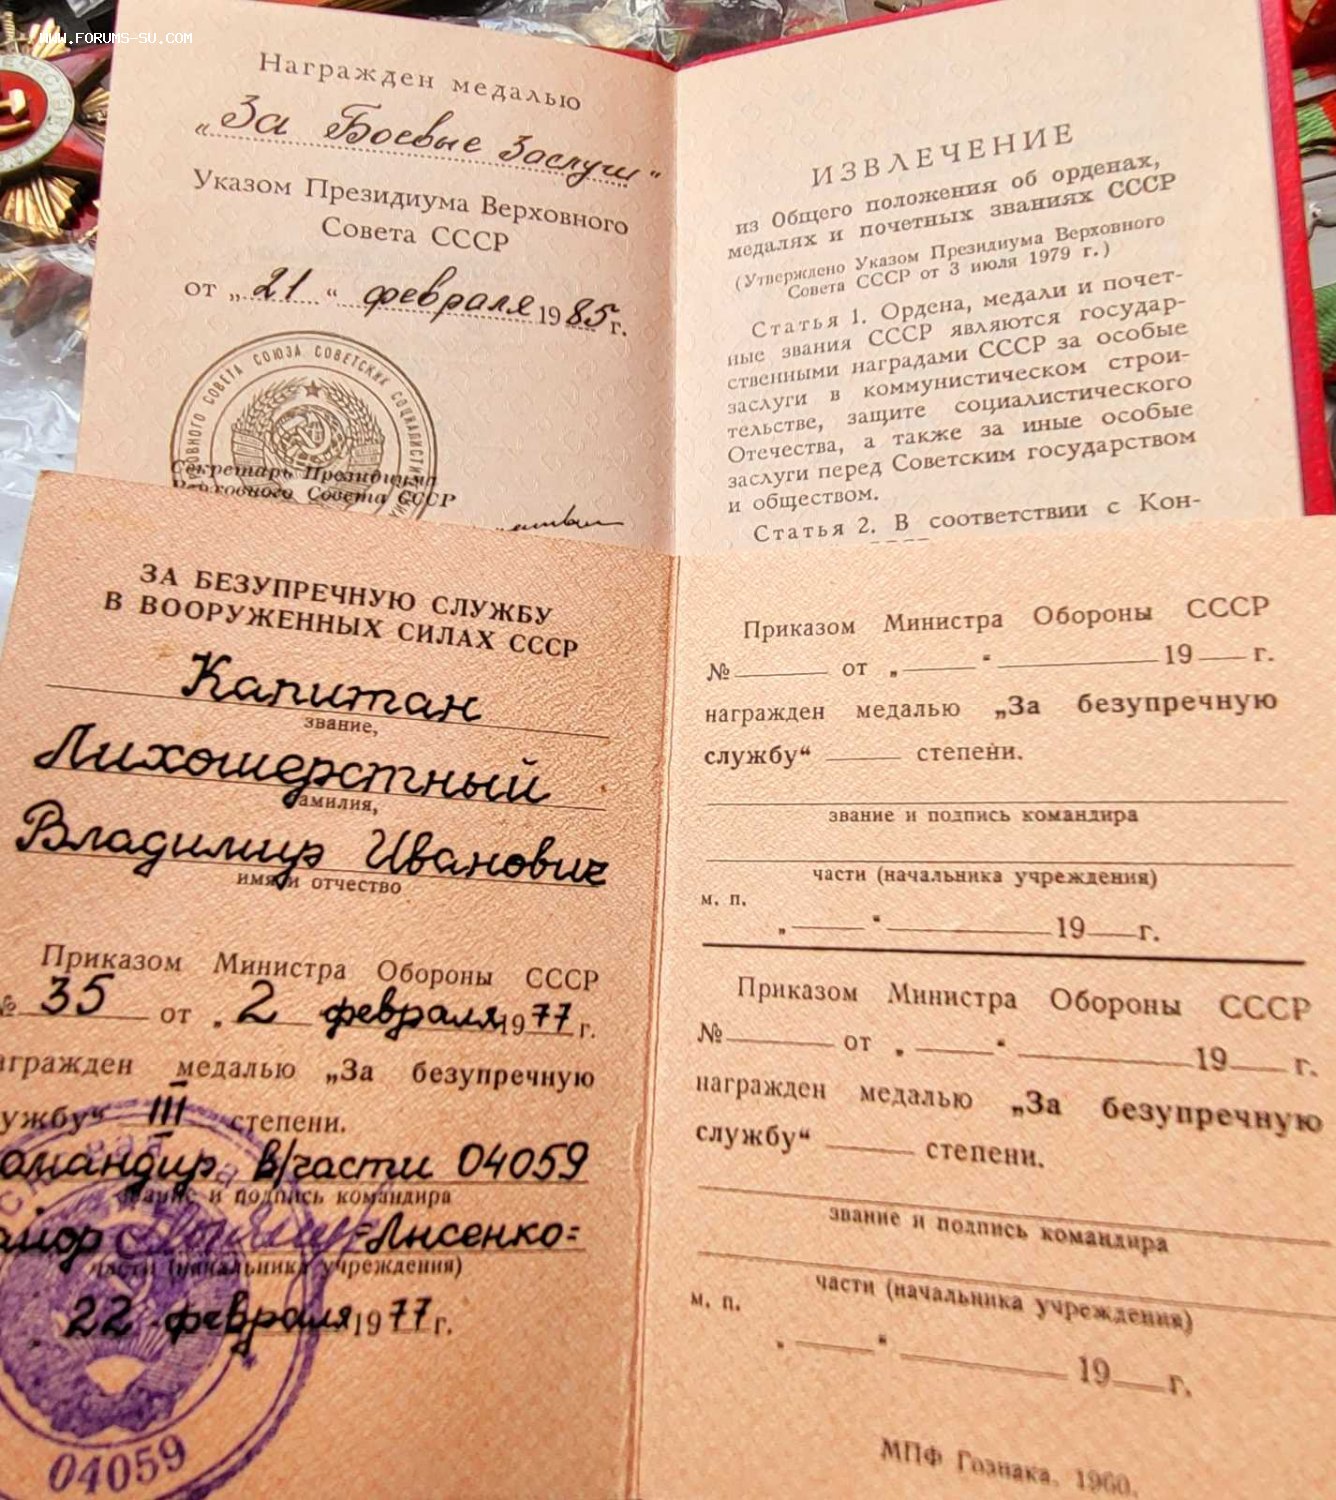 WWW.FORUMS-SU.COM
Награжден медалью
„За Боевые Заслуги“
Указом Президиума Верховного
Совета СССР
от „21“ февраля 1985 г.
ВЕРХОВНОГО СОВЕТА СОЮЗА СОВЕТСКИХ СОЦИАЛИСТИ
Секретарь Президиума
Верховного Совета СССР
ИЗВЛЕЧЕНИЕ
из Общего положения об орденах,
медалях и почетных званиях СССР
(Утверждено Указом Президиума Верховного
Совета СССР от 3 июля 1979 г.)
Статья 1. Ордена, медали и почет-
ные звания СССР являются государ-
ственными наградами СССР за особые
заслуги в коммунистическом строи-
тельстве, защите социалистического
Отечества, а также за иные особые
заслуги перед Советским государством
и обществом.
Статья 2. В соответствии с Кон-
ЗА БЕЗУПРЕЧНУЮ СЛУЖБУ
В ВООРУЖЕННЫХ СИЛАХ СССР
Капитан
звание,
Лихошерстный
амилия,
Владимир Иванович
имя и отчество
Приказом Министра Обороны СССР
№ 35 от „2 февраля 1977 г.
агражден медалью „За безупречную
ужбу“ III степени.
омандир в/части 04059
звание и подпись командира
айор =Лисенко=
части (начальника учреждения)
22 февраля 1977 г.
04059
Приказом Министра Обороны СССР
№ от „ “ 19 г.
награжден медалью „За безупречную
службу“ степени.
звание и подпись командира
части (начальника учреждения)
м. п.
„ “ 19 г.
Приказом Министра Обороны СССР
№ от „ “ 19 г.
награжден медалью „За безупречную
службу“ степени.
звание и подпись командира
части (начальника учреждения)
м. п.
„ “ 19 г.
МПФ Гознака. 1960.